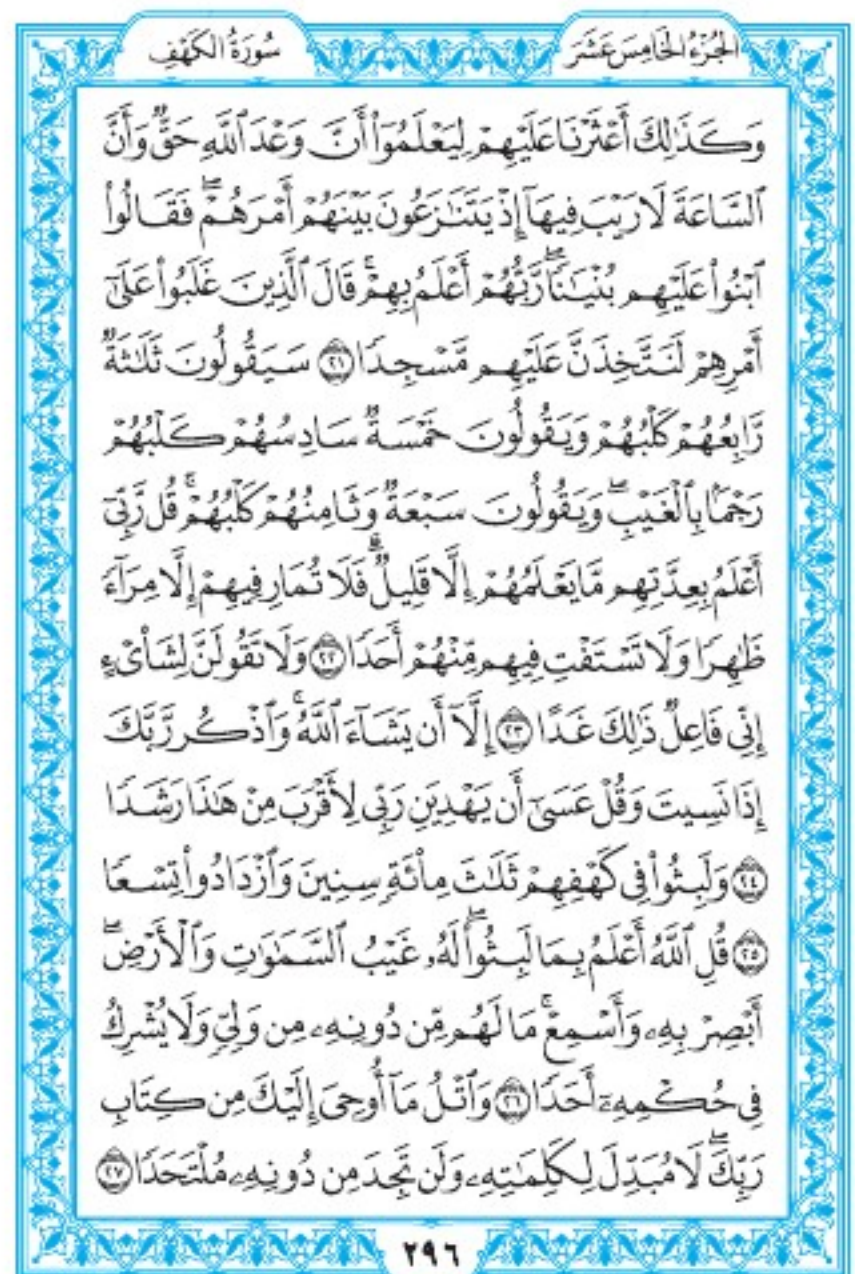 الجُزْءُ الخَامِسَ عَشَرَ
سُورَةُ الكَهْفِ
وَكَذَٰلِكَ أَعْثَرْنَا عَلَيْهِمْ لِيَعْلَمُوٓاْ أَنَّ وَعْدَ ٱللَّهِ حَقٌّ وَأَنَّ
ٱلسَّاعَةَ لَا رَيْبَ فِيهَآ إِذْ يَتَنَٰزَعُونَ بَيْنَهُمْ أَمْرَهُمْۖ فَقَالُواْ
ٱبْنُواْ عَلَيْهِم بُنْيَٰنًاۖ رَّبُّهُمْ أَعْلَمُ بِهِمْۚ قَالَ ٱلَّذِينَ غَلَبُواْ عَلَىٰٓ
أَمْرِهِمْ لَنَتَّخِذَنَّ عَلَيْهِم مَّسْجِدًا ٢١ سَيَقُولُونَ ثَلَٰثَةٌ
رَّابِعُهُمْ كَلْبُهُمْ وَيَقُولُونَ خَمْسَةٌ سَادِسُهُمْ كَلْبُهُمْ
رَجْمًۢا بِٱلْغَيْبِۖ وَيَقُولُونَ سَبْعَةٌ وَثَامِنُهُمْ كَلْبُهُمْۚ قُل رَّبِّيٓ
أَعْلَمُ بِعِدَّتِهِم مَّا يَعْلَمُهُمْ إِلَّا قَلِيلٌۗ فَلَا تُمَارِ فِيهِمْ إِلَّا مِرَآءً
ظَٰهِرًا وَلَا تَسْتَفْتِ فِيهِم مِّنْهُمْ أَحَدًا ٢٢ وَلَا تَقُولَنَّ لِشَاْيْءٍ
إِنِّي فَاعِلٌ ذَٰلِكَ غَدًا ٢٣ إِلَّآ أَن يَشَآءَ ٱللَّهُۚ وَٱذْكُر رَّبَّكَ
إِذَا نَسِيتَ وَقُلْ عَسَىٰٓ أَن يَهْدِيَنِ رَبِّي لِأَقْرَبَ مِنْ هَٰذَا رَشَدًا
٢٤ وَلَبِثُواْ فِي كَهْفِهِمْ ثَلَٰثَ مِاْئَةٍ سِنِينَ وَٱزْدَادُواْ تِسْعًا
٢٥ قُلِ ٱللَّهُ أَعْلَمُ بِمَا لَبِثُواْۖ لَهُۥ غَيْبُ ٱلسَّمَٰوَٰتِ وَٱلْأَرْضِۖ
أَبْصِرْ بِهِۦ وَأَسْمِعْۚ مَا لَهُم مِّن دُونِهِۦ مِن وَلِيٍّ وَلَا يُشْرِكُ
فِي حُكْمِهِۦٓ أَحَدًا ٢٦ وَٱتْلُ مَآ أُوحِيَ إِلَيْكَ مِن كِتَابِ
رَبِّكَۖ لَا مُبَدِّلَ لِكَلِمَٰتِهِۦ وَلَن تَجِدَ مِن دُونِهِۦ مُلْتَحَدًا ٢٧
٢٩٦